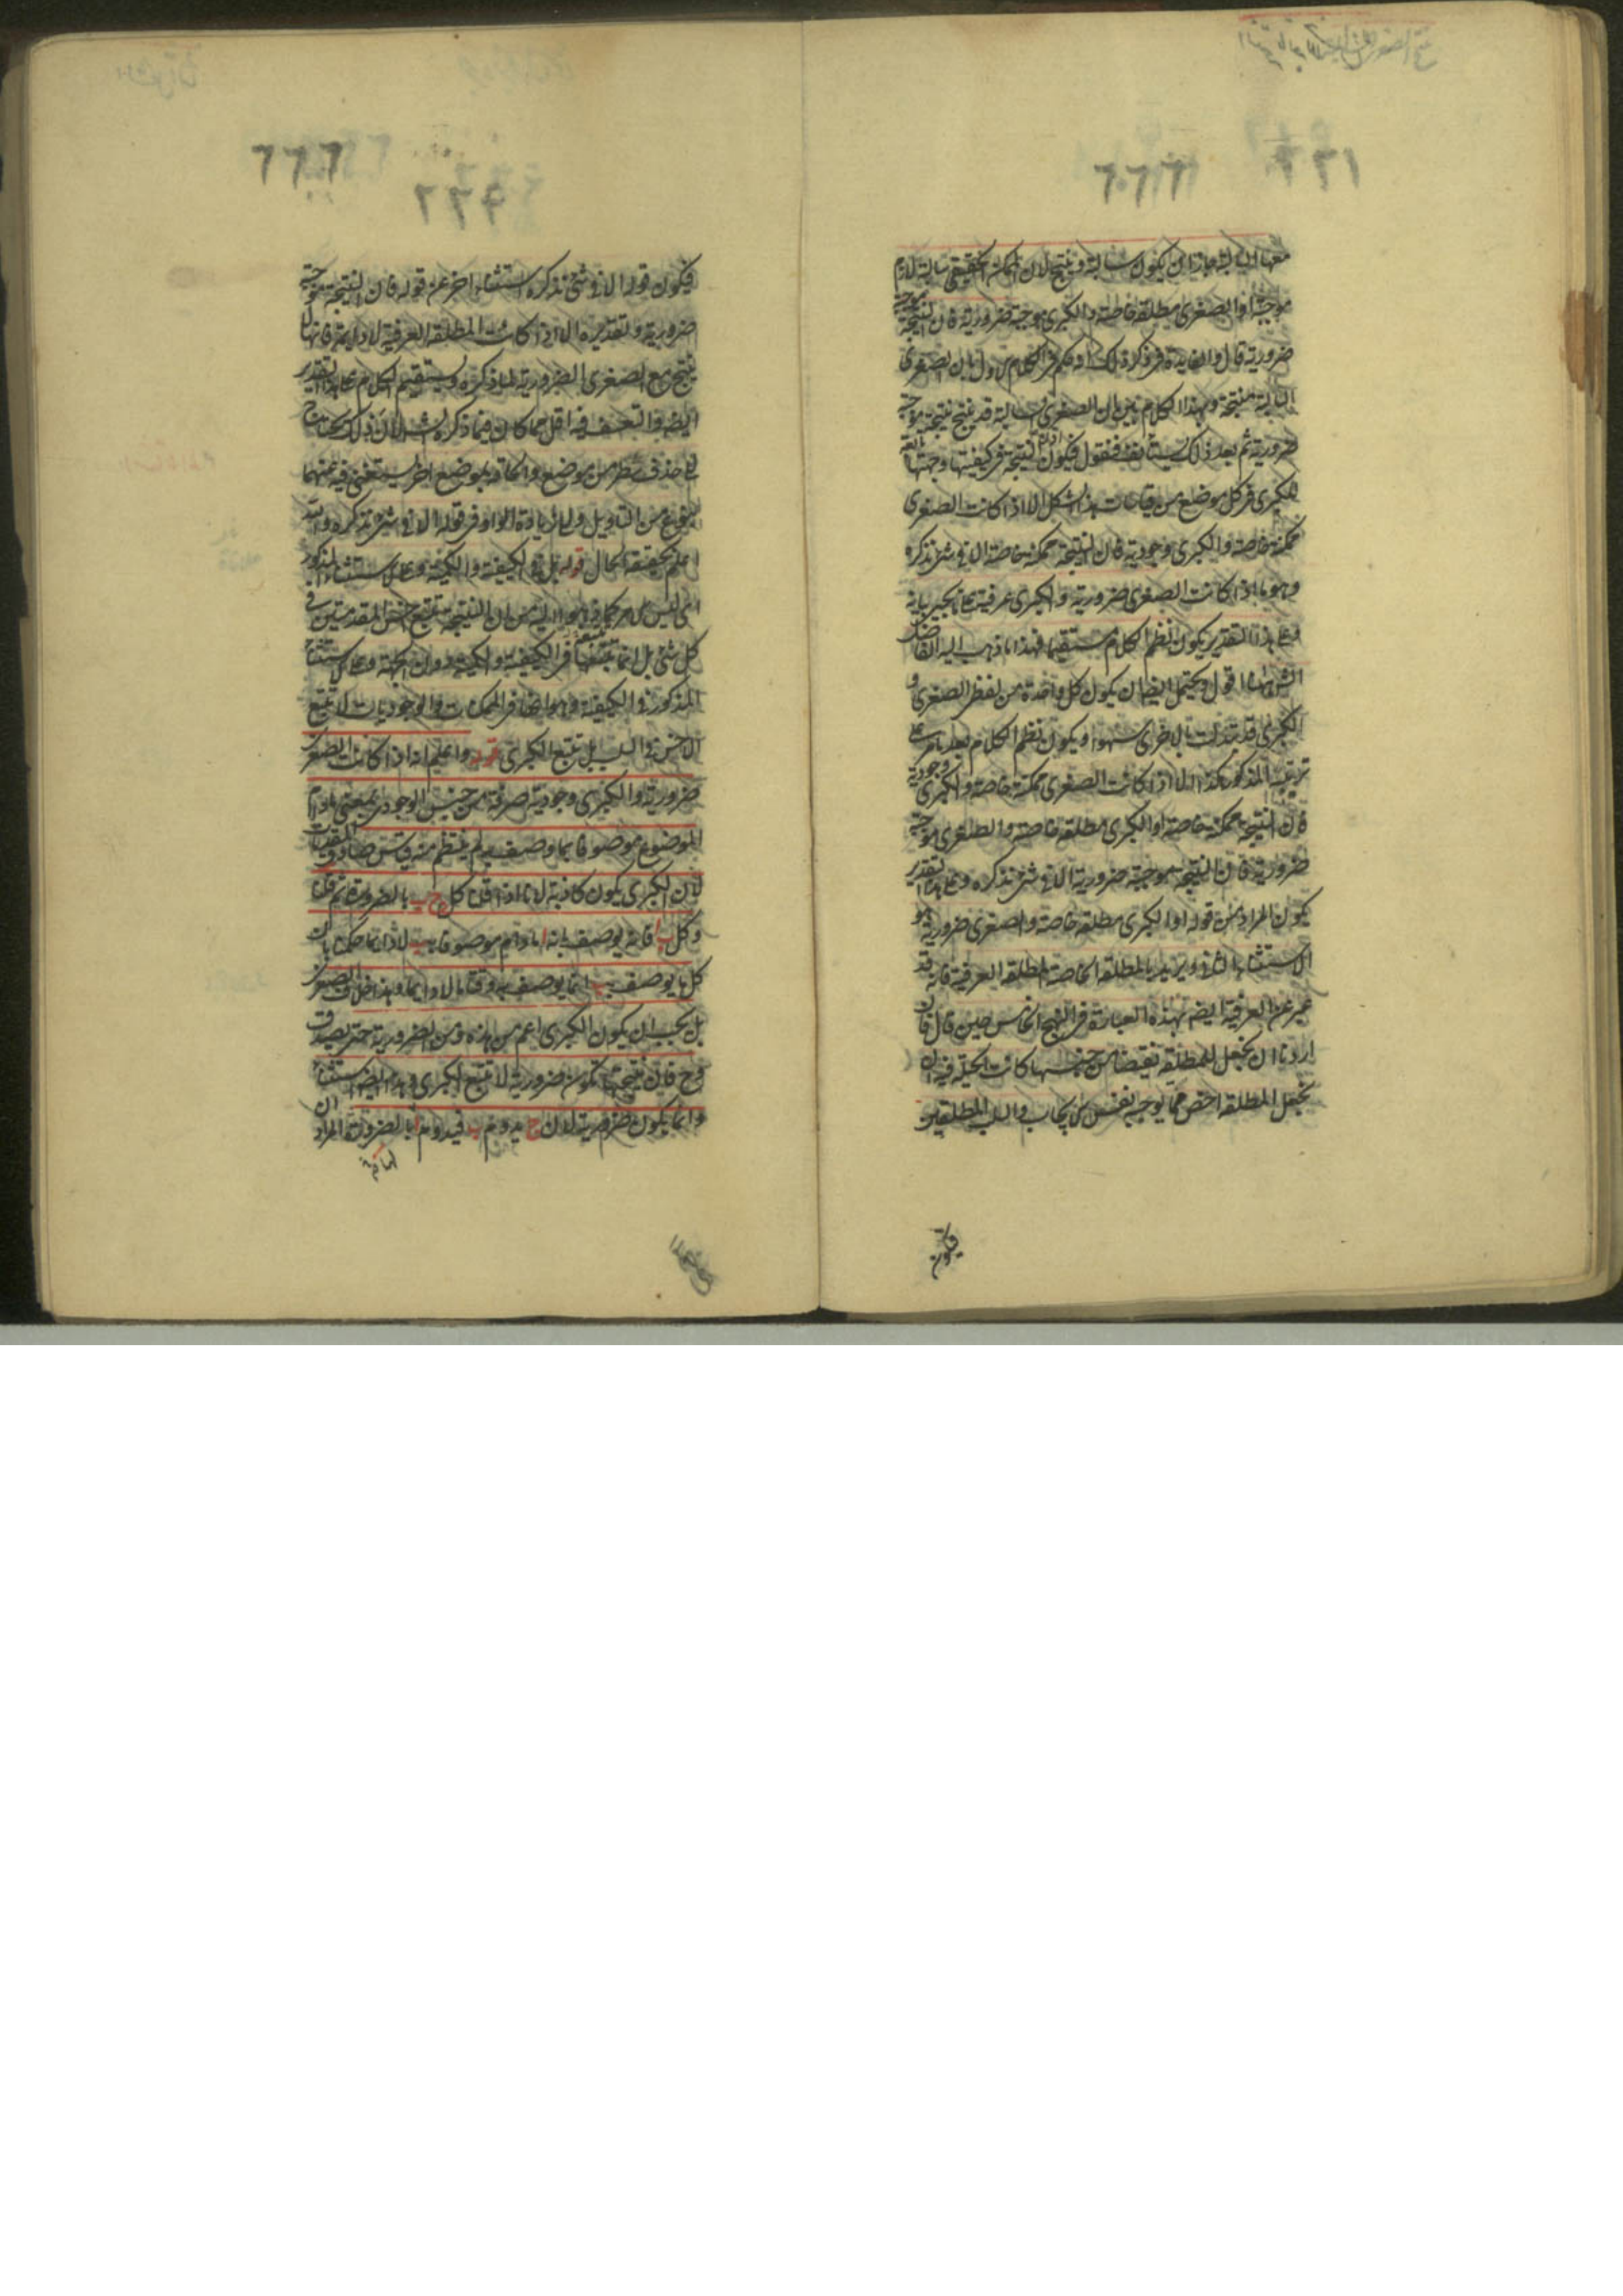 معها السالبة جاز ان يكون سالبة وينتج لان الممكن الحقيقي سالبة لازم
موجبة او الصغرى مطلقة خاصة والكبرى موجبة ضرورية فان النتيجة موجبة
ضرورية قال والفايدة في ذكر ذلك انه حكم في الكلام الاول بان الصغرى
السالبة منتجة وبهذا الكلام بين ان الصغرى السالبة قد ينتج نتيجة موجبة
ضرورية ثم بعد ذلك يستأنف فنقول فيكون اذن النتيجة في كيفيتها وجهتها تابعة
للكبرى في كل موضع من قياسات هذا الشكل الا اذا كانت الصغرى
ممكنة خاصة والكبرى وجودية فان النتيجة ممكنة خاصة الا في شئ نذكره
وهو ما اذا كانت الصغرى ضرورية والكبرى عرفية على ما يجئ بيانه
وعلى هذا التقدير يكون نظم الكلام مستقيما فهذا ما ذهب اليه الفاضل
الشارح اقول ويحتمل ايضا ان يكون كل واحدة من لفظتي الصغرى و
الكبرى قد تبدلت بالاخرى سهوا ويكون نظم الكلام بعد ما مر على
ترتيبه المذكور هكذا الا اذا كانت الصغرى ممكنة خاصة والكبرى وجودية
فان النتيجة ممكنة خاصة او الكبرى مطلقة خاصة والصغرى موجبة
ضرورية فان النتيجة موجبة ضرورية الا في شئ نذكره وعلى هذا التقدير
يكون المراد من قوله او الكبرى مطلقة خاصة والصغرى ضرورية هو
الاستثناء الثاني ويريد بالمطلقة الخاصة المطلقة العرفية فانه قد
عبر عن العرفية ايضا بهذه العبارة في النهج الخامس حين قال فان
اردنا ان نجعل للمطلقة نقيضا من جنسها كانت الحيلة فيه ان
نجعل المطلقة اخص مما يوجبه نفس الايجاب والسلب المطلقين
فيكون
فيكون قوله الا في شئ نذكره استثناء اخر عن قوله فان النتيجة موجبة
ضرورية وتقديره الا اذا كانت المطلقة العرفية لا دايمة فانها لا
ينتج مع الصغرى الضرورية لما ذكره ويستقيم الكلام على هذا التقدير
ايضا والتعسف فيه اقل مما كان فيما ذكره الشارح لان ذلك يحتاج
الى حذف سطر من موضع والحاقه بموضع اخر يستغنى فيه عنهما
بنوع من التأويل والى زيادة الواو في قوله الا في شئ نذكره والله
اعلم بحقيقة الحال قوله بل في الكيفية والكمية وعلى الاستثناء المذكور
اي ليس الامر كما ذهبوا اليه من ان النتيجة تتبع اخس المقدمتين في
كل شئ بل انما تتبعها في الكيفية والكمية دون الجهة وعلى الاستثناء
المذكور في الكيفية وهو انها في الممكنات والوجوديات لا تتبع
الاخس في السلب بل تتبع الكبرى قوله واعلم انه اذا كانت الصغرى
ضرورية والكبرى وجودية صرفة من جنس الوجودي بمعنى ما دام
الموضوع موصوفا بما وصف به لم ينتظم منه قياس صادق المقدمات
لان الكبرى يكون كاذبة لانا اذا قلنا كل ج ب بالضرورة ثم قلنا
وكل ب فانه يوصف بانه ا ما دام موصوفا بب لا دائما حكمنا بان
كل ما يوصف بب انما يوصف به وقتا ما لا دائما وهذا خلاف الصغرى
بل يجب ان يكون الكبرى اعم من هذه ومن الضرورية حتى يصدق
وح فان نتيجتها يكون ضرورية لا تتبع الكبرى وهذا ايضا استثناء
وانما يكون ضرورية لان ج يدوم ب فيدوم ا بالضرورة المراد ان